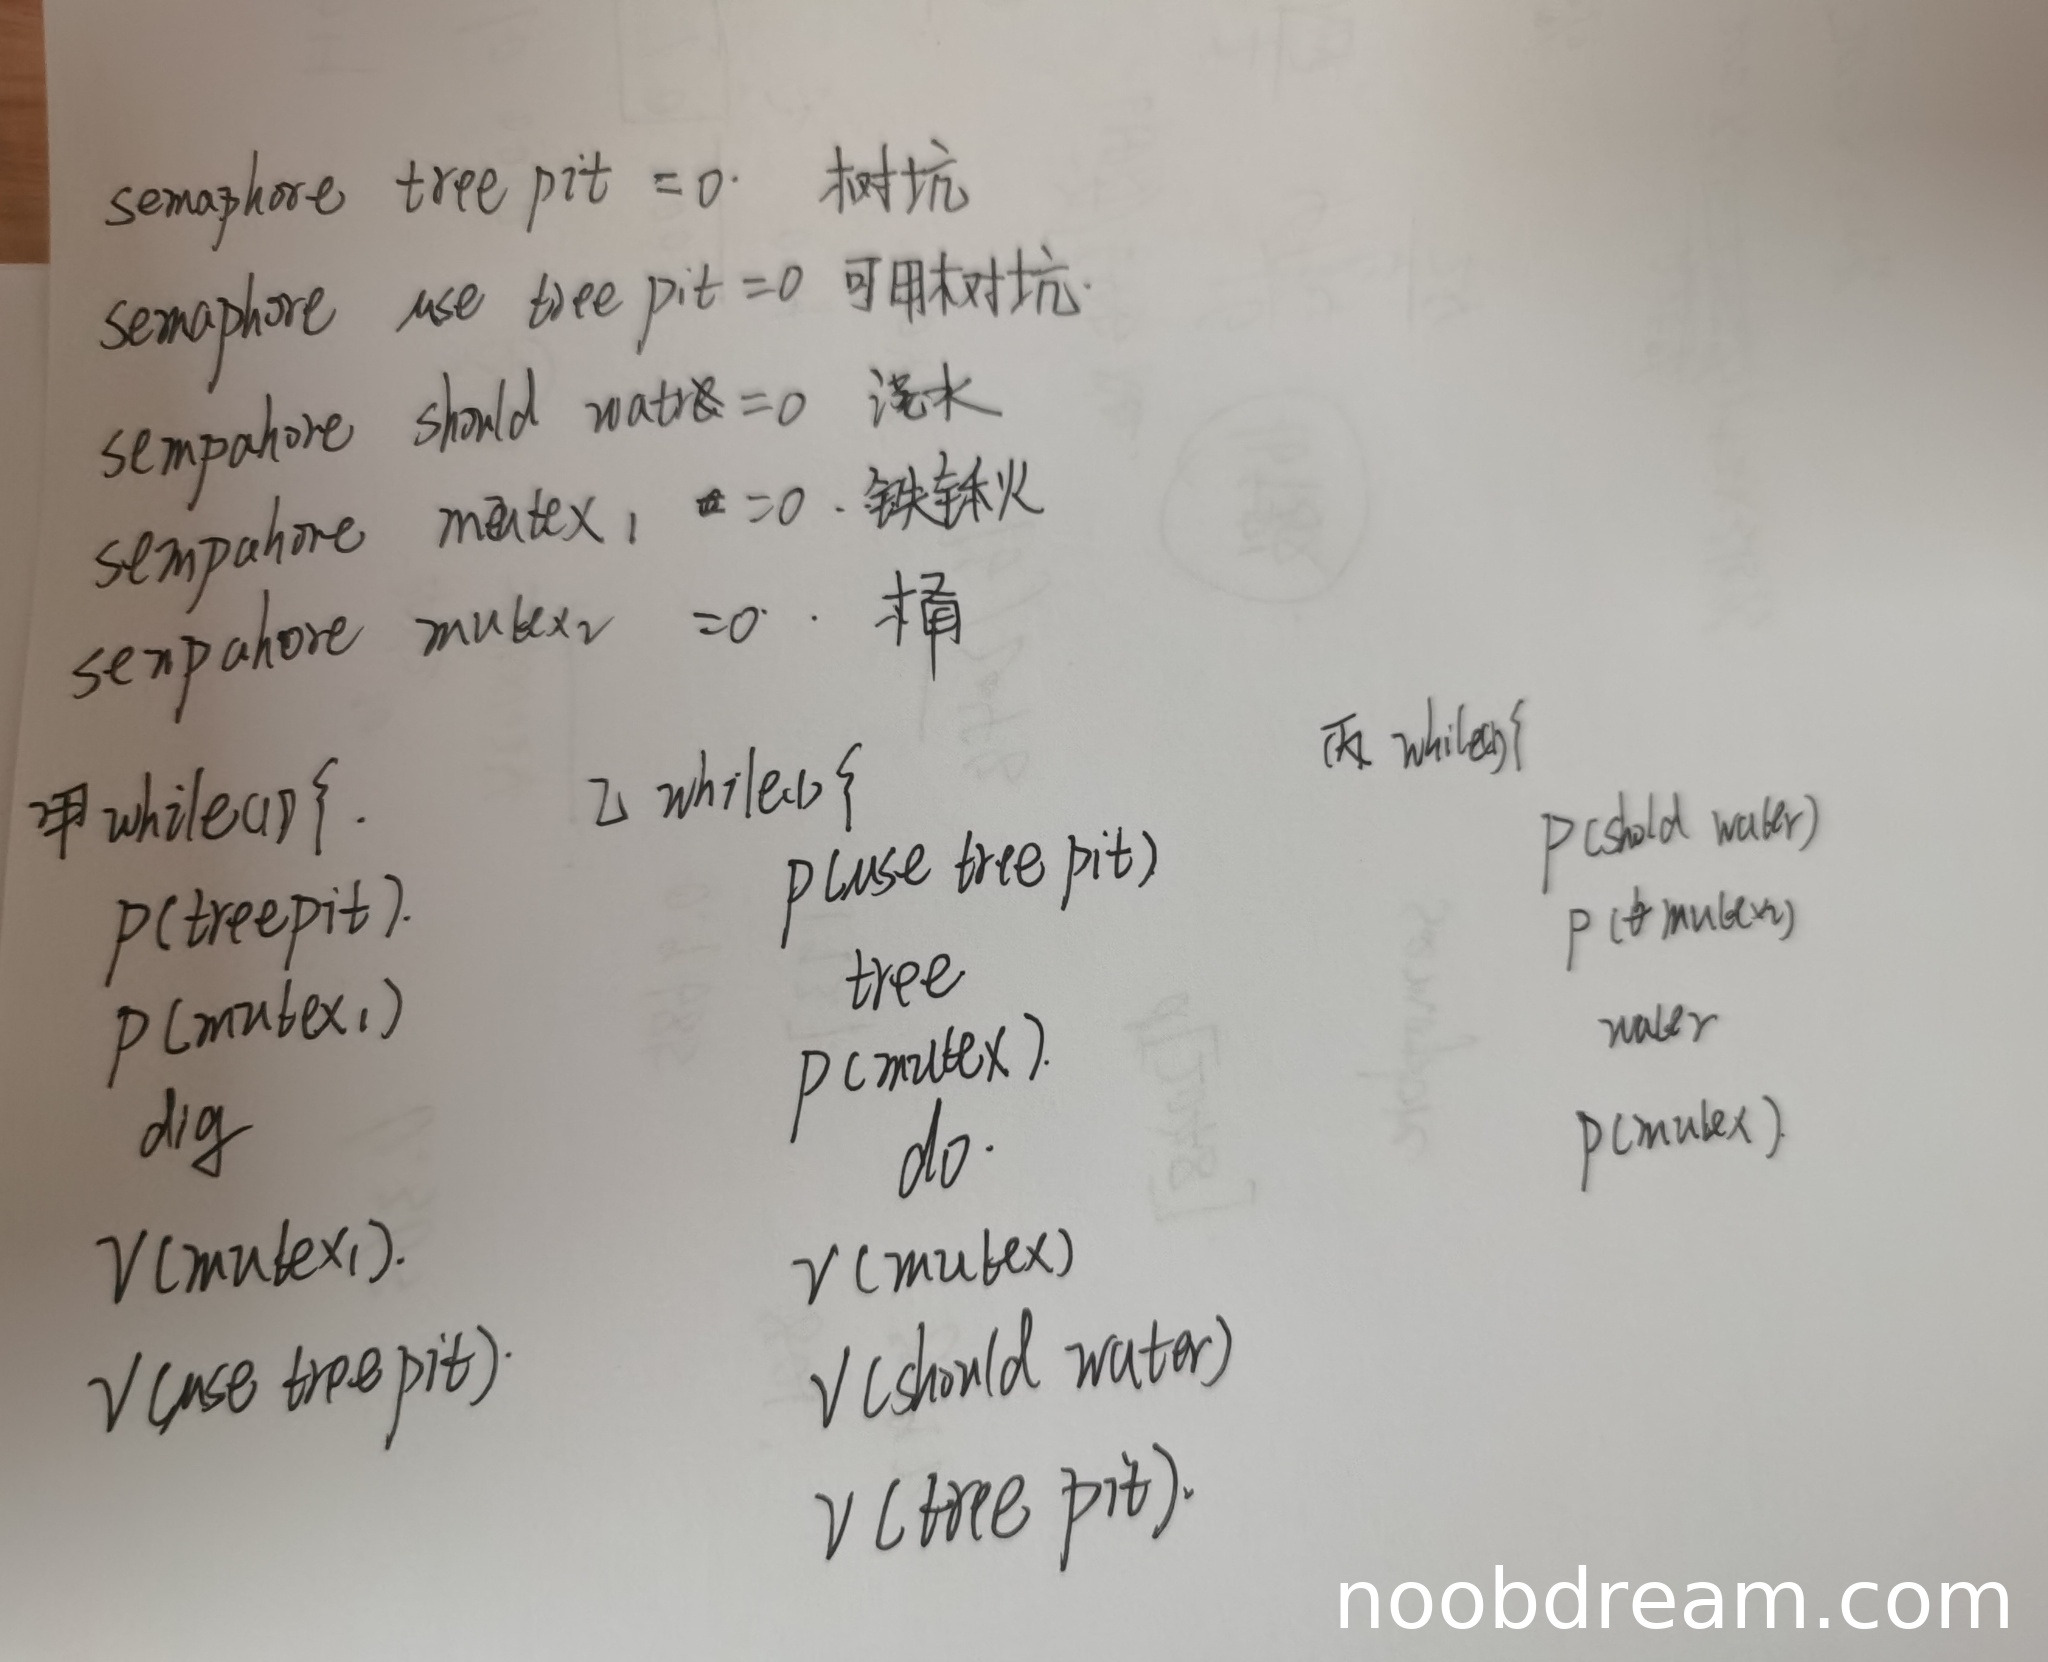 semaphore tree pit =0. 树坑
semaphore use tree pit =0 可用树坑.
sempahore should water =0 浇水
sempahore mutex1 =0. 铁锹
sempahore mutex2 =0. 桶
甲 while(1){.
p(treepit).
p(mutex1)
dig
V(mutex1).
V(use tree pit).
乙 while(1){
p(use tree pit)
tree
p(mutex).
do.
V(mutex)
V(should water)
V(tree pit).
丙 while(1){
p(shold water)
p(mutex2)
water
p(mutex).
noobdream.com